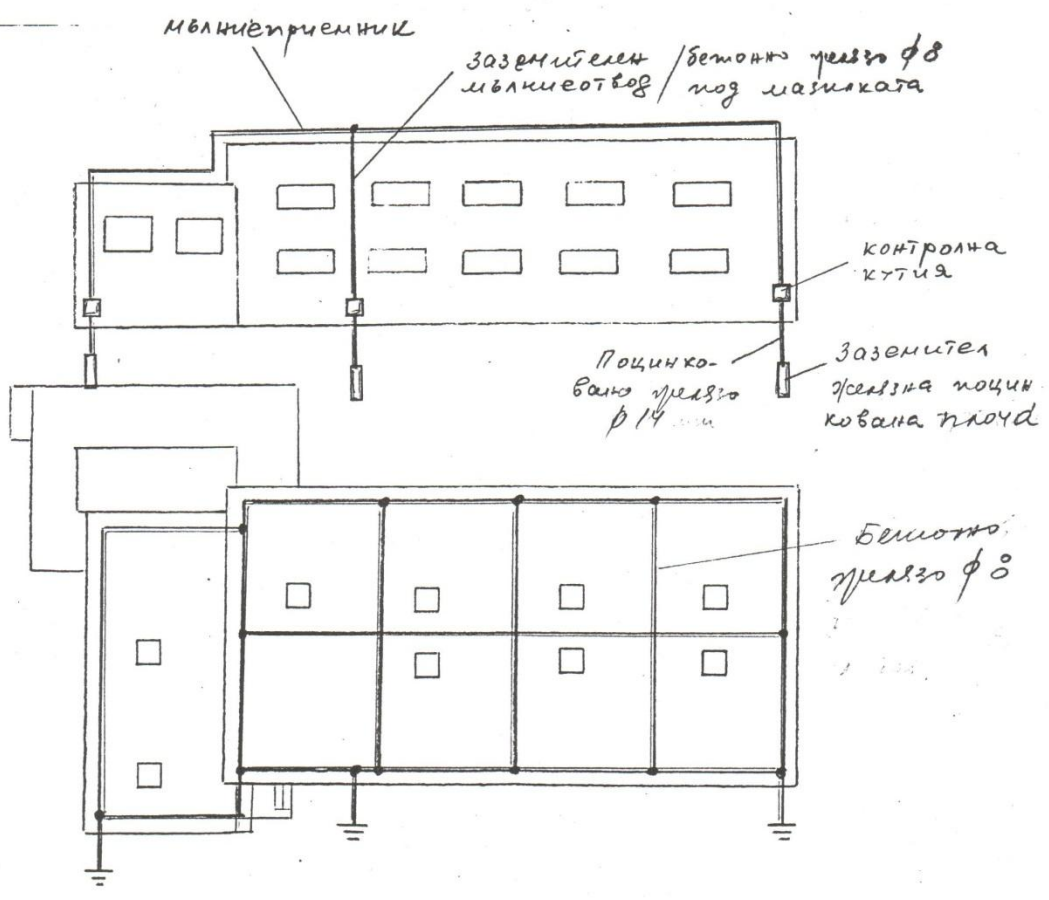 мълниеприемник
заземителен / бетонно желязо ф8
мълниеотвод / под мазилката
контролна
кутия
Поцинко-
вано желязо
ф14 мм
Заземител
желязна поцин
кована плоча
Бетонно
желязо ф8